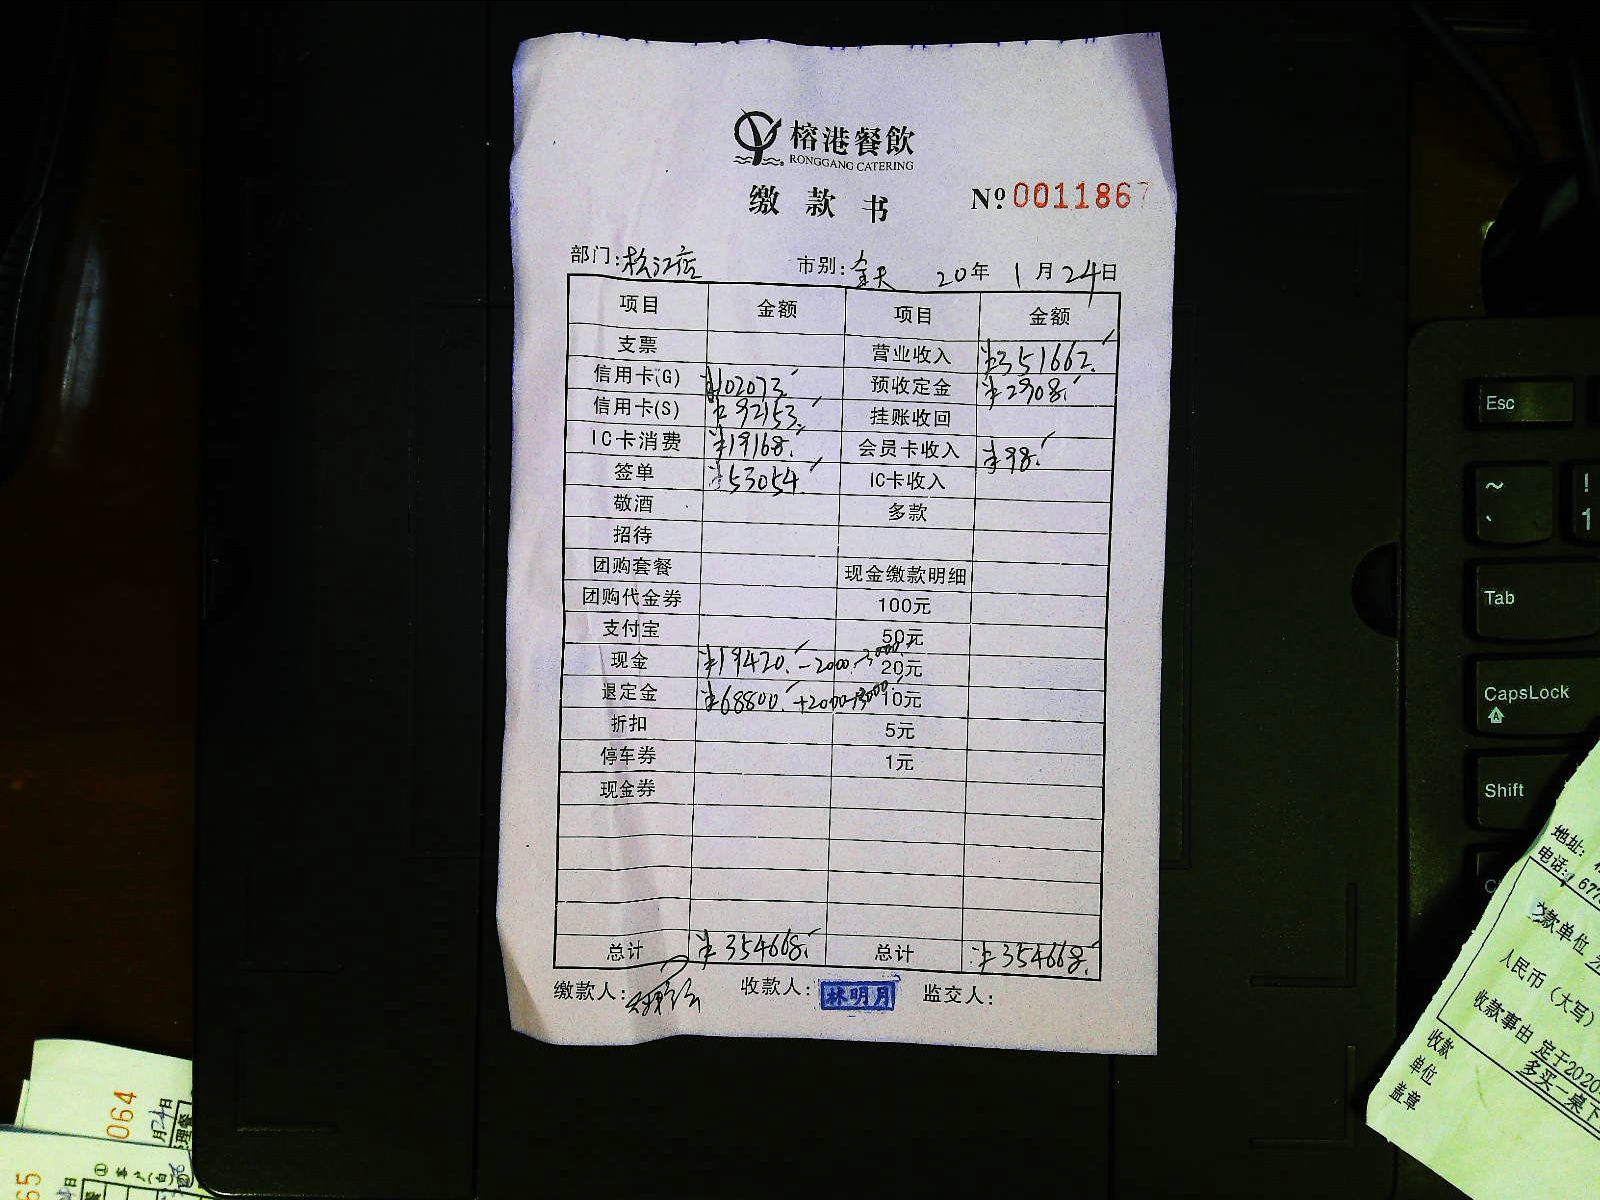 榕港餐飲
RONGGANG CATERING
缴款书 №0011867
部门:松江店 市别:全天 20年 1月24日
项目 金额 项目 金额
支票 营业收入 ¥351662.
信用卡(G) ¥102073 预收定金 ¥2908.
信用卡(S) ¥92153. 挂账收回
IC卡消费 ¥19168. 会员卡收入 ¥98.
签单 ¥53054. IC卡收入
敬酒 多款
招待
团购套餐 现金缴款明细
团购代金券 100元
支付宝 50元
现金 ¥19420. -2000.-3000. 20元
退定金 ¥68800. +2000+3000. 10元
折扣 5元
停车券 1元
现金券
总计 ¥354668. 总计 ¥354668.
缴款人: 收款人:林明月 监交人:
Esc
~
! 1
Tab
CapsLock
Shift
地址:
电话: 677
交款单位
人民币（大写）
收款事由 定于2020
多买一桌下
收款
单位
盖章
064
月24日
65
日